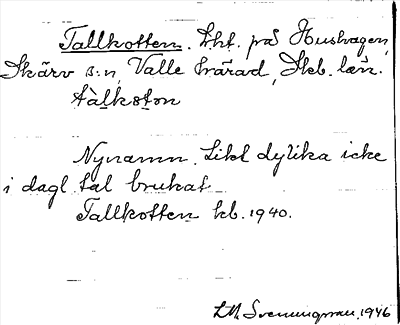 Tallkotten. Lht. på Hushagen,
Skärv s:n, Valle härad, Skb. län.
tàlkɷtɷn
Nynamn. Likt dylika icke
i dagl. tal brukat.
Tallkotten kb. 1940.
L.M. Svenungsson, 1946